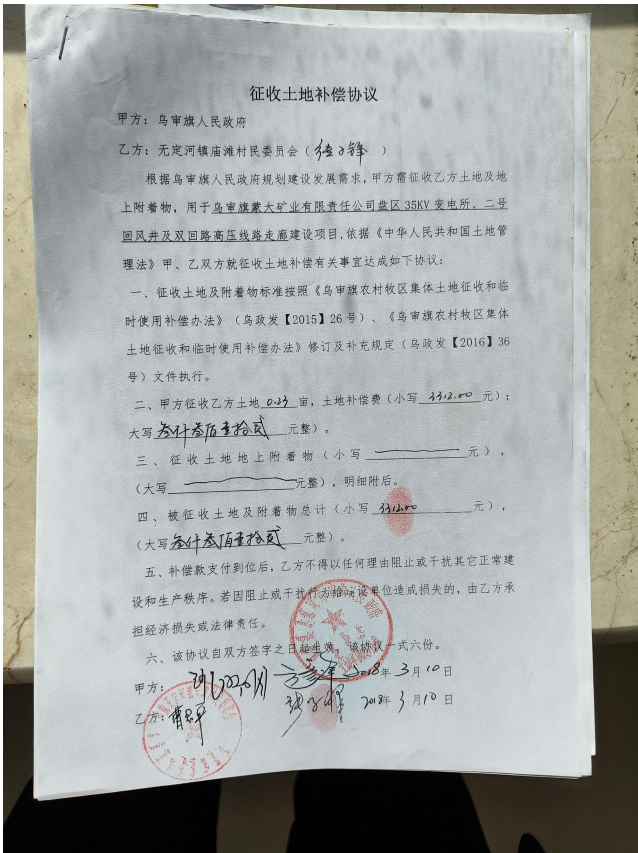 征收土地补偿协议
甲方：乌审旗人民政府
乙方：无定河镇庙滩村民委员会（）
根据乌审旗人民政府规划建设发展需求，甲方需征收乙方土地及地
上附着物，用于乌审旗蒙大矿业有限责任公司盘区35KV变电所、二号
回风井及双回路高压线路走廊建设项目，依据《中华人民共和国土地管
理法》甲、乙双方就征收土地补偿有关事宜达成如下协议：
一、征收土地及附着物标准按照《乌审旗农村牧区集体土地征收和临
时使用补偿办法》（乌政发【2015】26号）、《乌审旗农村牧区集体
土地征收和临时使用补偿办法》修订及补充规定（乌政发【2016】36
号）文件执行。
二、甲方征收乙方土地0.23亩，土地补偿费（小写3312.00元）；
大写叁仟叁佰壹拾贰元整）。
三、征收土地地上附着物（小写元），
（大写元整），明细附后。
四、被征收土地及附着物总计（小写3312.00元），
（大写叁仟叁佰壹拾贰元整）。
五、补偿款支付到位后，乙方不得以任何理由阻止或干扰其它正常建
设和生产秩序。若因阻止或干扰行为给建设单位造成损失的，由乙方承
担经济损失或法律责任。
六、该协议自双方签字之日起生效，该协议一式六份。
甲方：2018年3月10日
乙方：2018年3月10日